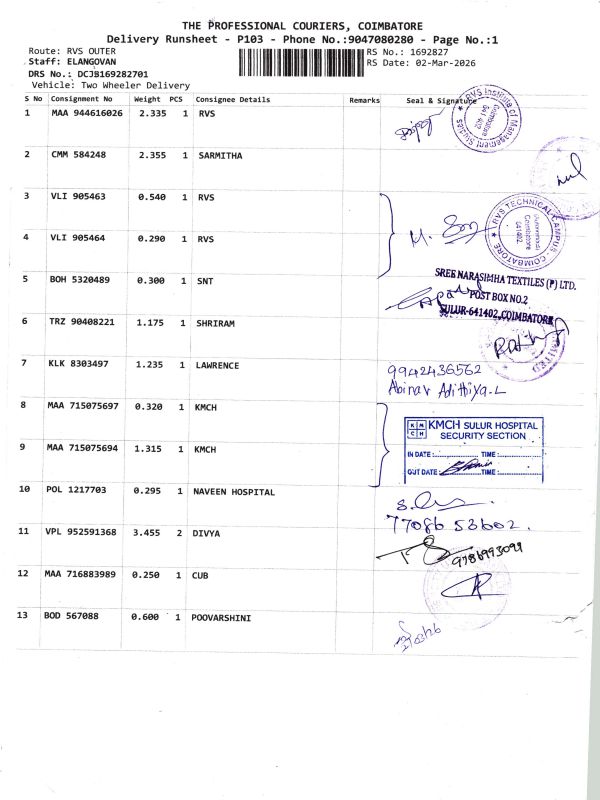 THE PROFESSIONAL COURIERS, COIMBATORE
Delivery Runsheet - P103 - Phone No.:9047080280 - Page No.:1
Route: RVS OUTER
Staff: ELANGOVAN
DRS No.: DCJB169282701
Vehicle: Two Wheeler Delivery
RS No.: 1692827
RS Date: 02-Mar-2026
S No Consignment No Weight PCS Consignee Details Remarks Seal & Signature
1 MAA 944616026 2.335 1 RVS
RVS Institute of Management Studies
Coimbatore
641 402
2 CMM 584248 2.355 1 SARMITHA
3 VLI 905463 0.540 1 RVS
RVS TECHNICAL CAMPUS - COIMBATORE
Coimbatore
641402
4 VLI 905464 0.290 1 RVS
5 BOH 5320489 0.300 1 SNT
SREE NARASIMHA TEXTILES (P) LTD.
POST BOX NO.2
SULUR-641402, COIMBATORE
6 TRZ 90408221 1.175 1 SHRIRAM
7 KLK 8303497 1.235 1 LAWRENCE
9942436562
Abinav Adithiya.L
8 MAA 715075697 0.320 1 KMCH
KMCH
KMCH SULUR HOSPITAL
SECURITY SECTION
IN DATE : TIME :
OUT DATE : TIME :
9 MAA 715075694 1.315 1 KMCH
10 POL 1217703 0.295 1 NAVEEN HOSPITAL
77086 53602.
11 VPL 952591368 3.455 2 DIVYA
9786993099
12 MAA 716883989 0.250 1 CUB
13 BOD 567088 0.600 1 POOVARSHINI